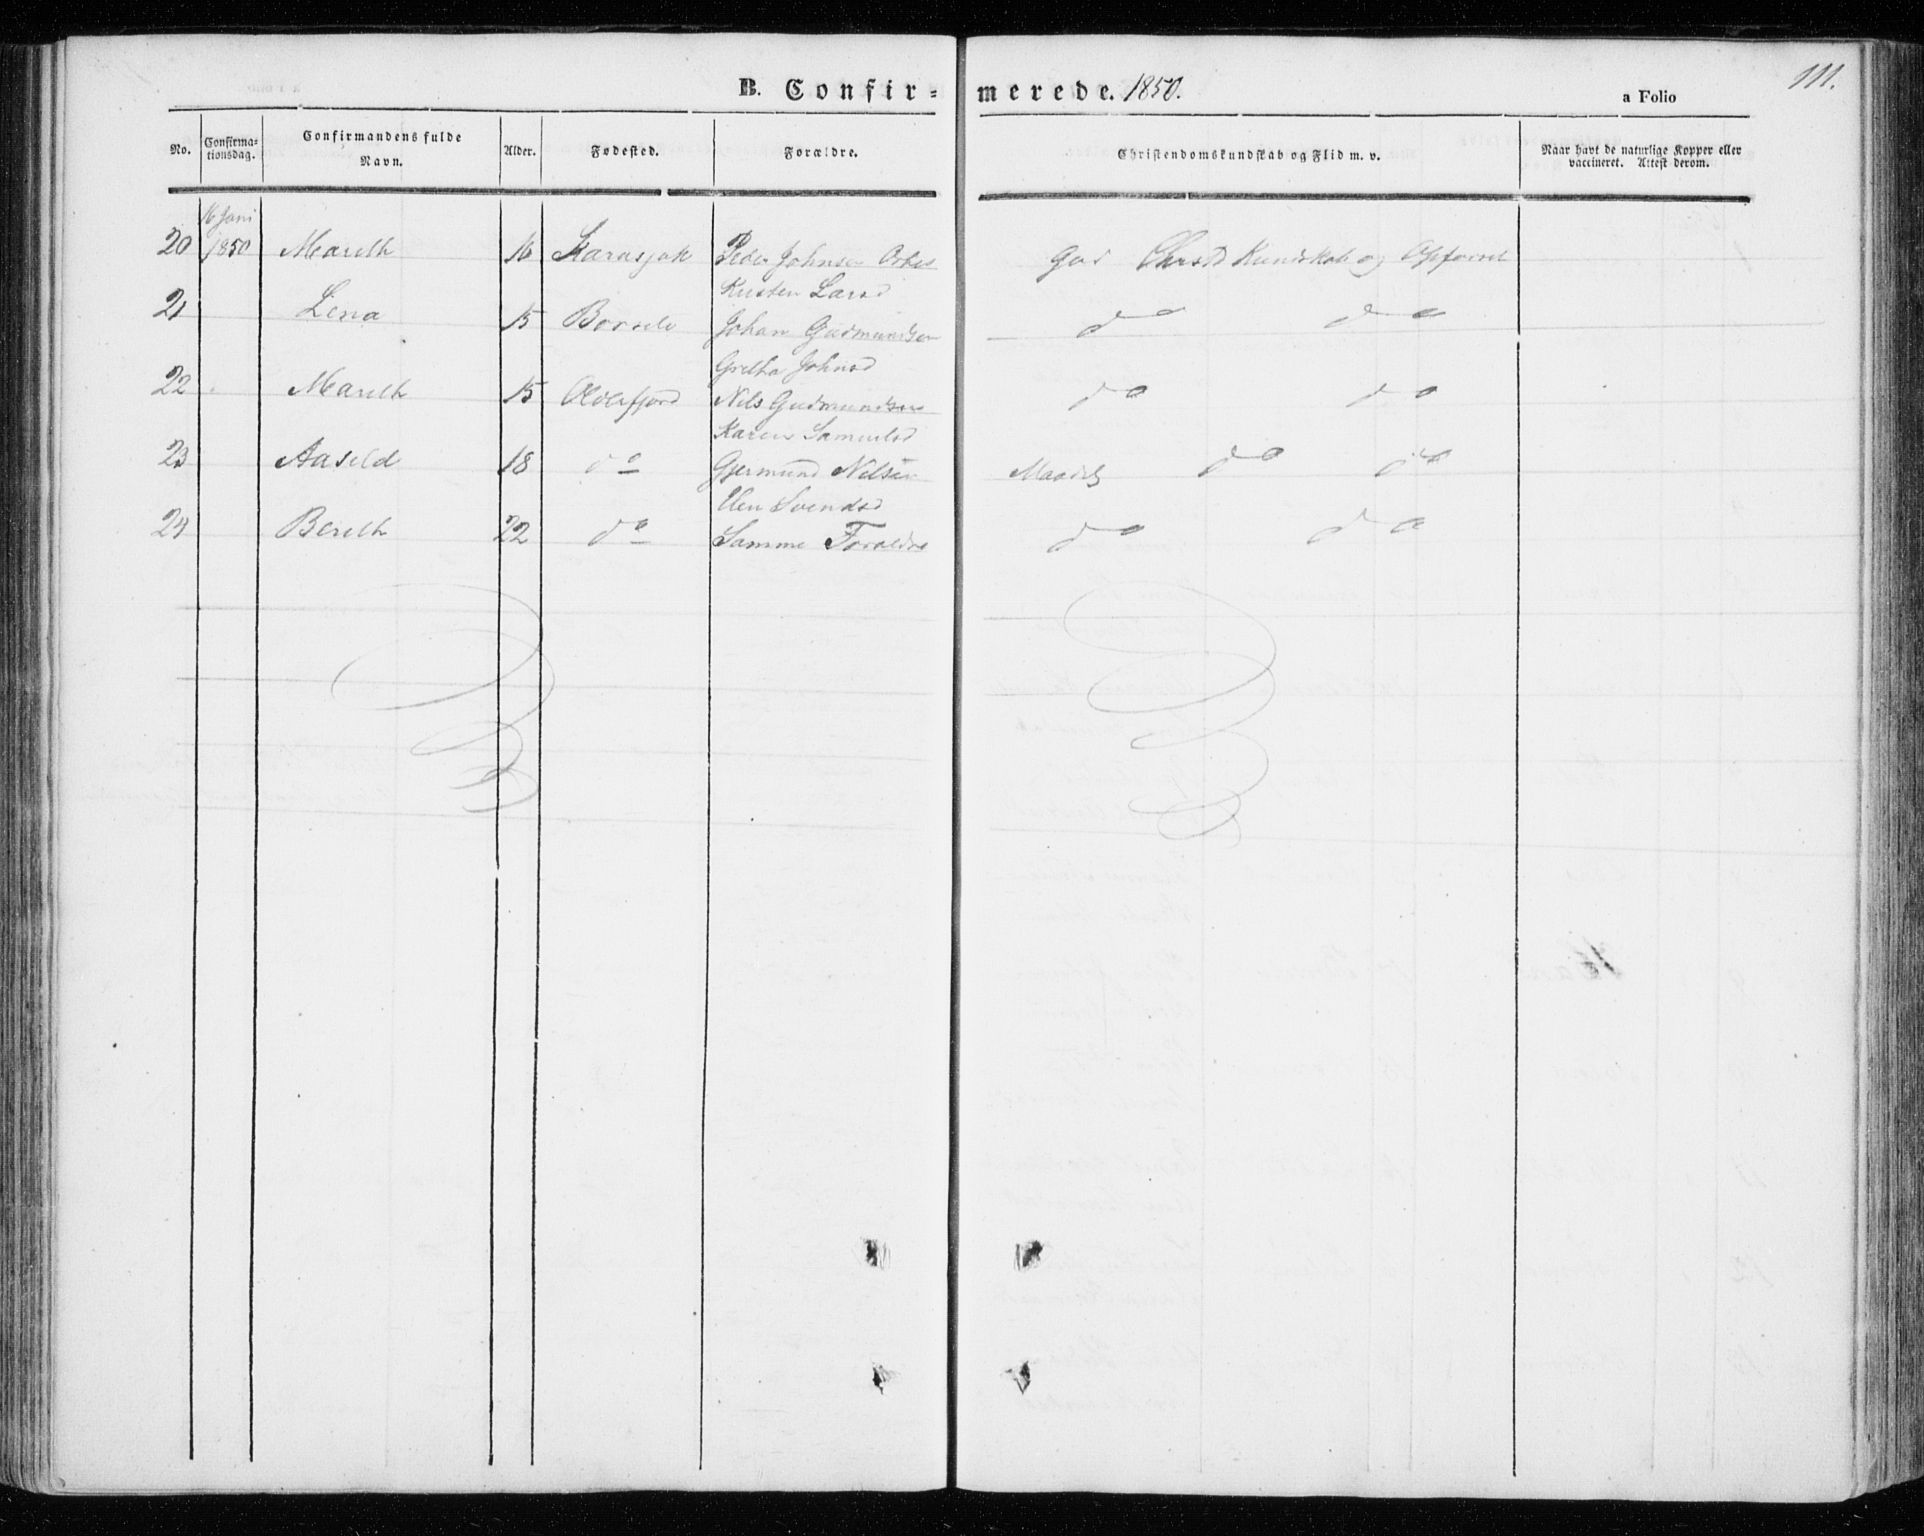 111.
B. Confir= merede. 1850.
a Folio
No. Confirma=tionsdag. Confirmandens fulde Navn. Alder. Fødested. Forældre. Christendomskundskab og Flid m. v. Naar havt de naturlige Kopper eller vaccineret. Attest derom.
16 Juni
20 1850 Mareth 16 Karasjok Peder Johnsen God Christd Kundskab og Opførsel
Kirsten Larsd
21 Lena 15 Børselv Johan Gudmundsen do do
Grethe Johnsd
22 Mareth 15 Olderfjord Nils Gudmundsen do do
Karen Samuelsd
23 Aaseld 18 do Gjermund Nilsen Maadelg do do
Elen Svendsd
24 Bereth 22 do Samme Forældre do do